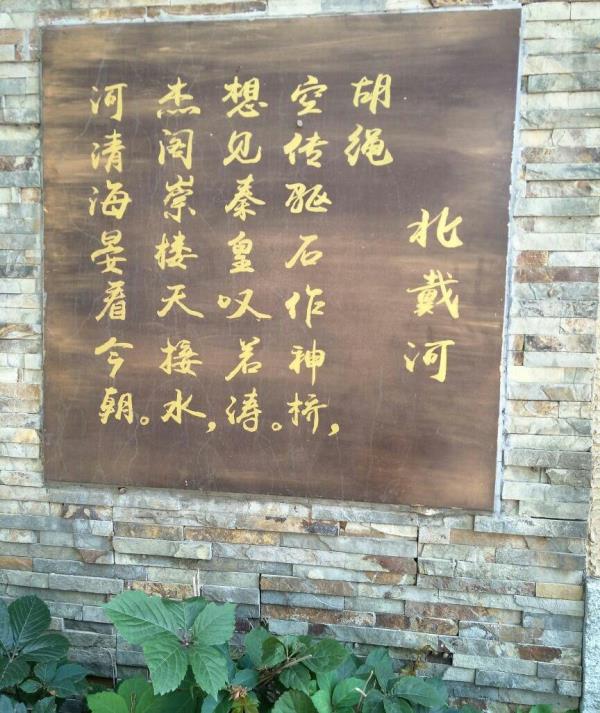 北戴河
胡绳
空传驱石作神桥，
想见秦皇叹若涛。
杰阁崇楼天接水，
河清海晏看今朝。